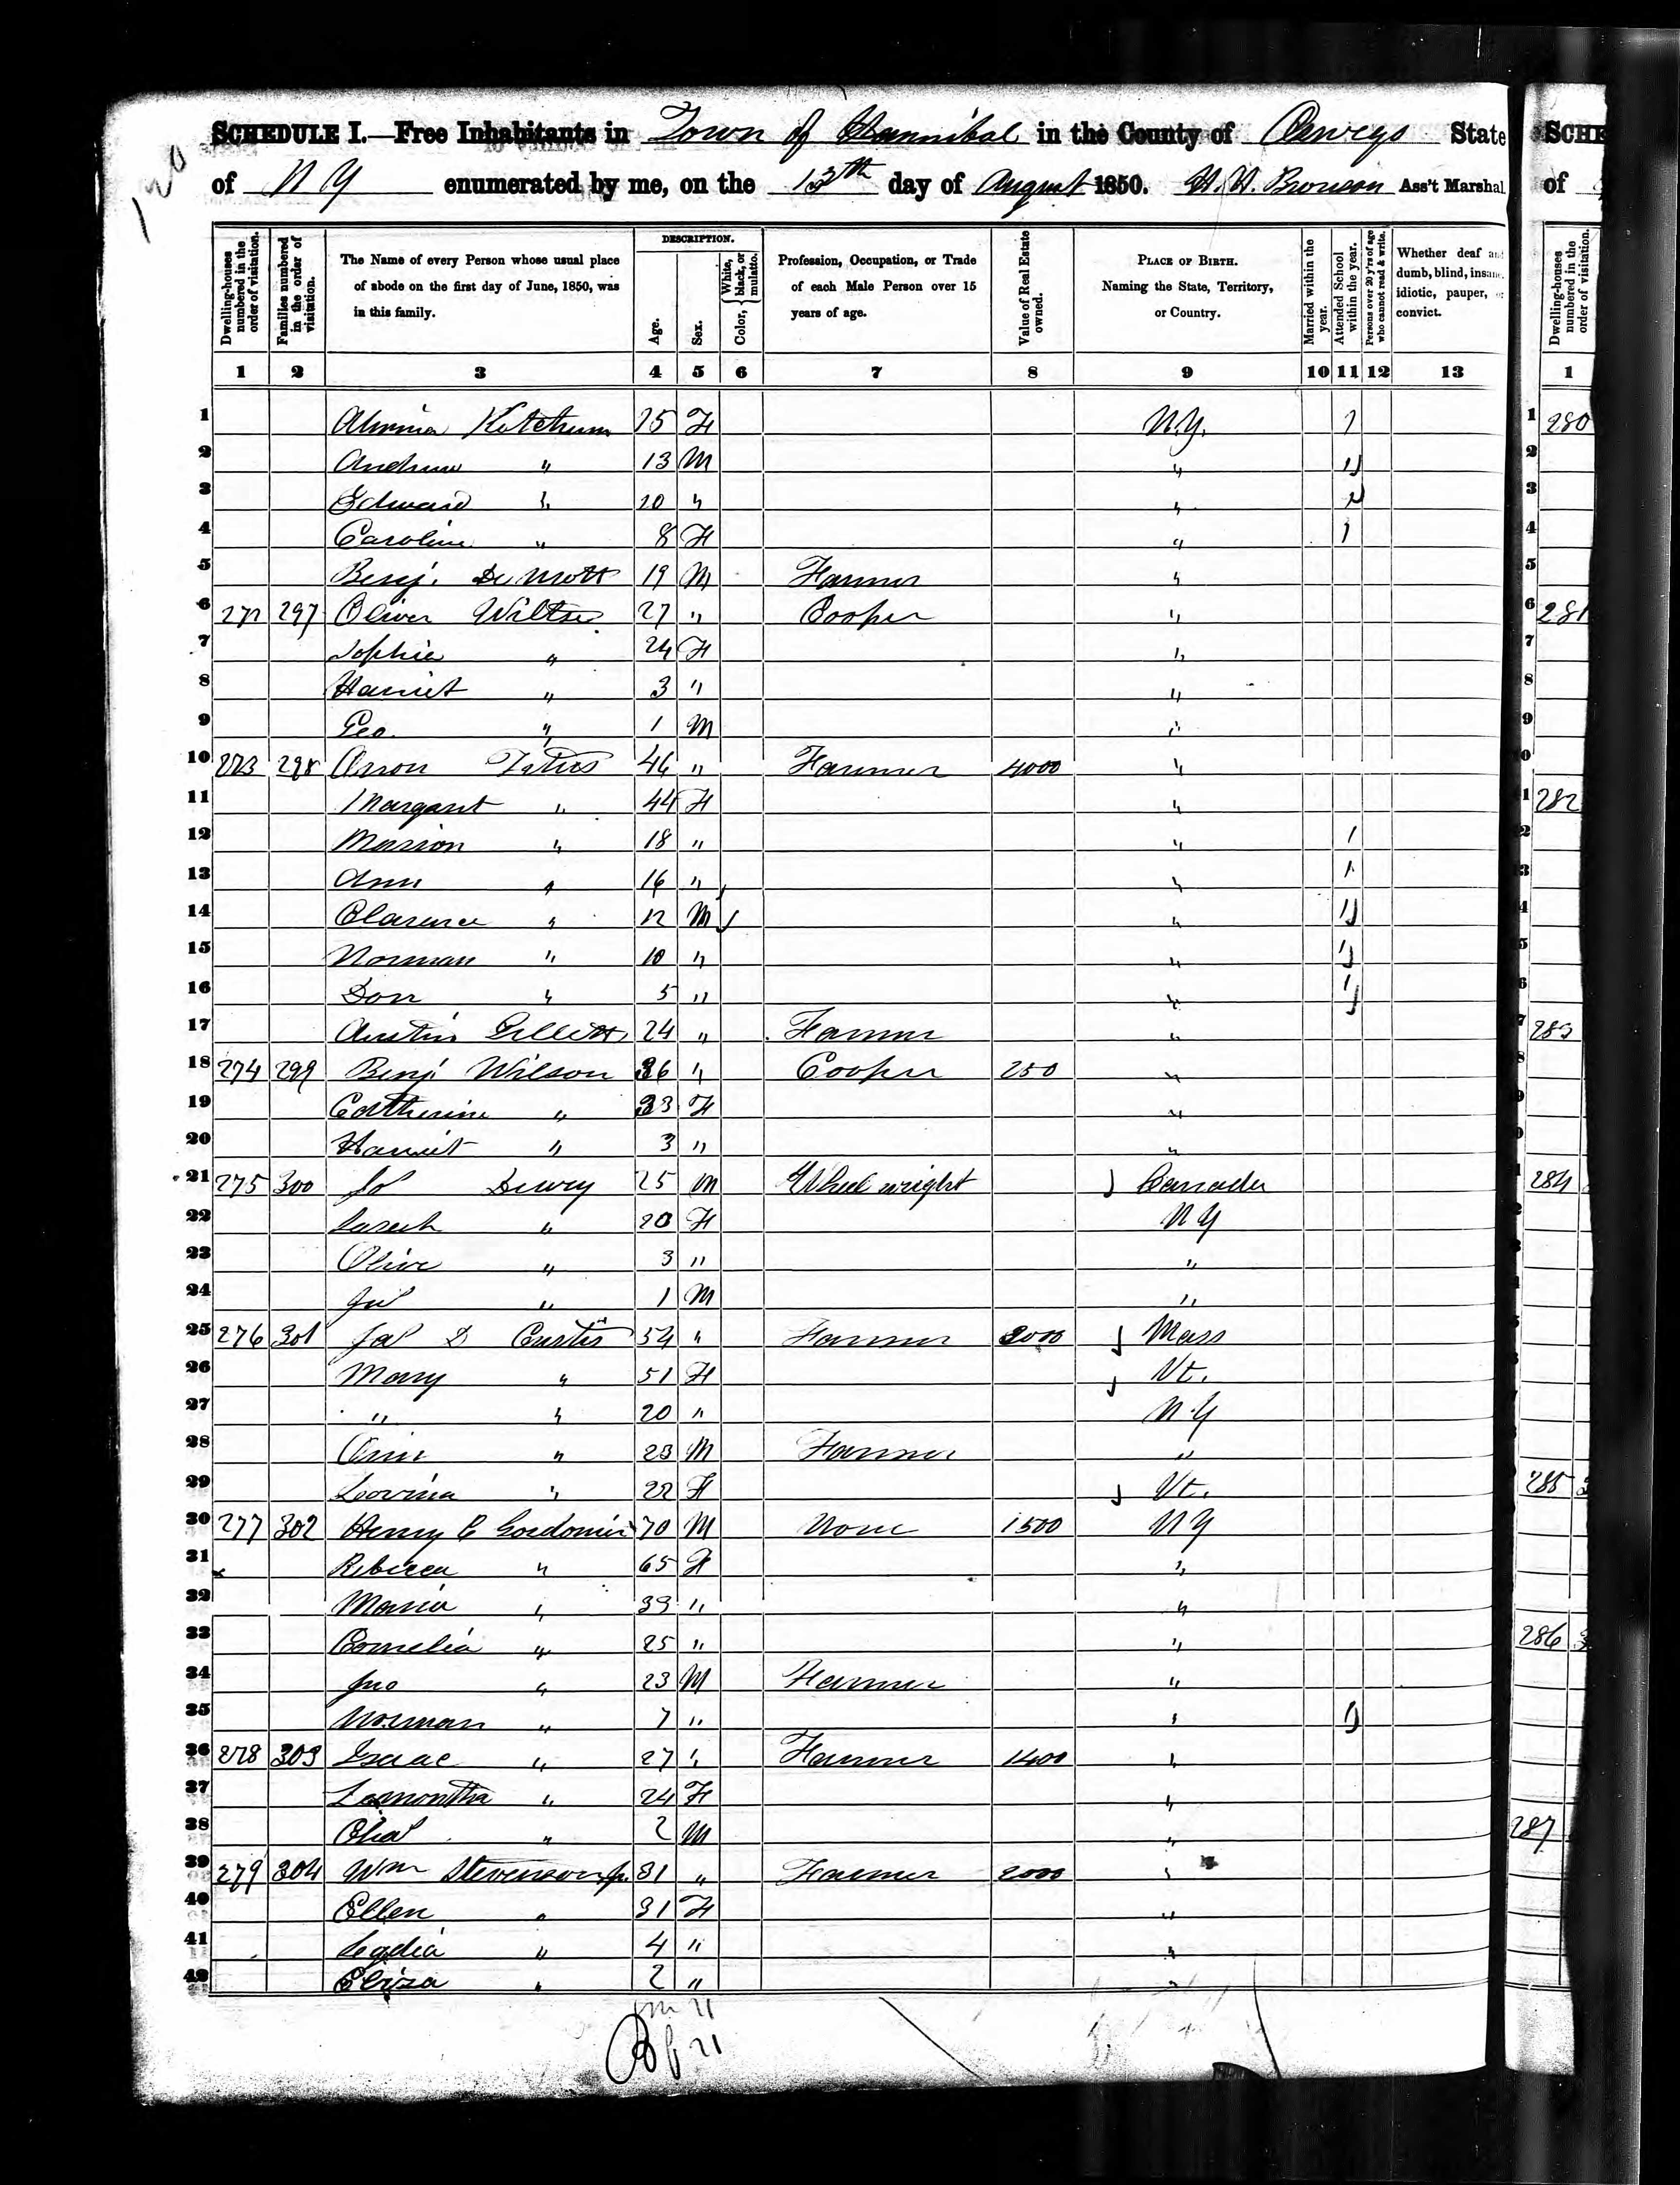 120
SCHEDULE I.—Free Inhabitants in Town of Hannibal in the County of Oswego State
of N Y enumerated by me, on the 13th day of August 1850. H. H. Bronson Ass't Marshal
Dwelling-houses numbered in the order of visitation. Families numbered in the order of visitation. The Name of every Person whose usual place of abode on the first day of June, 1850, was in this family. DESCRIPTION. Age. Sex. Color, White, black, or mulatto. Profession, Occupation, or Trade of each Male Person over 15 years of age. Value of Real Estate owned. PLACE OF BIRTH. Naming the State, Territory, or Country. Married within the year. Attended School within the year. Persons over 20 y'rs of age who cannot read & write. Whether deaf and dumb, blind, insane, idiotic, pauper, or convict.
1 2 3 4 5 6 7 8 9 10 11 12 13
1 Almina Ketchum 15 F N.Y. 1
2 Andrew " 13 M " 1
3 Edward " 10 " " 1
4 Caroline " 8 F " 1
5 Benj. De Mott 19 M Farmer "
6 272 297 Oliver Wiltse 27 " Cooper "
7 Sophia " 24 F "
8 Harriet " 3 " "
9 Geo. " 1 M "
10 273 298 Arron Titus 46 " Farmer 4000 "
11 Margaret " 44 F "
12 Marion " 18 " " 1
13 Ann " 16 " " 1
14 Clarence " 12 M " 1
15 Norman " 10 " " 1
16 Don " 5 " " 1
17 Austin Gillett 24 " Farmer "
18 274 299 Benj. Wilson 36 " Cooper 250 "
19 Catherine " 33 F "
20 Harriet " 3 " "
21 275 300 Jos Dewey 25 M Wheel wright Canada
22 Sarah " 20 F N Y
23 Olive " 3 " "
24 " 1 M "
25 276 301 Jas D Curtis 54 " Farmer 2000 Mass
26 Mary " 51 F Vt.
27 " " 20 " N.Y
28 Orin " 23 M Farmer "
29 Lovina " 22 F Vt.
30 277 302 Henry C Gordonier 70 M None 1500 N Y
31 Rebecca " 65 F "
32 Maria " 33 " "
33 Cornelia " 25 " "
34 Jno " 23 M Farmer "
35 Norman " 7 " " 1
36 278 303 Isaac " 27 " Farmer 1400 "
37 " 24 F "
38 Chas " 2 M "
39 279 304 Wm Stevenson Jr. 31 " Farmer 2000 "
40 Ellen " 31 F "
41 Lydia " 4 " "
42 Eliza " 2 " "
m 21
f 21
SCHE
of
Dwelling-houses numbered in the order of visitation.
1
280
281
282
283
284
285
286
287